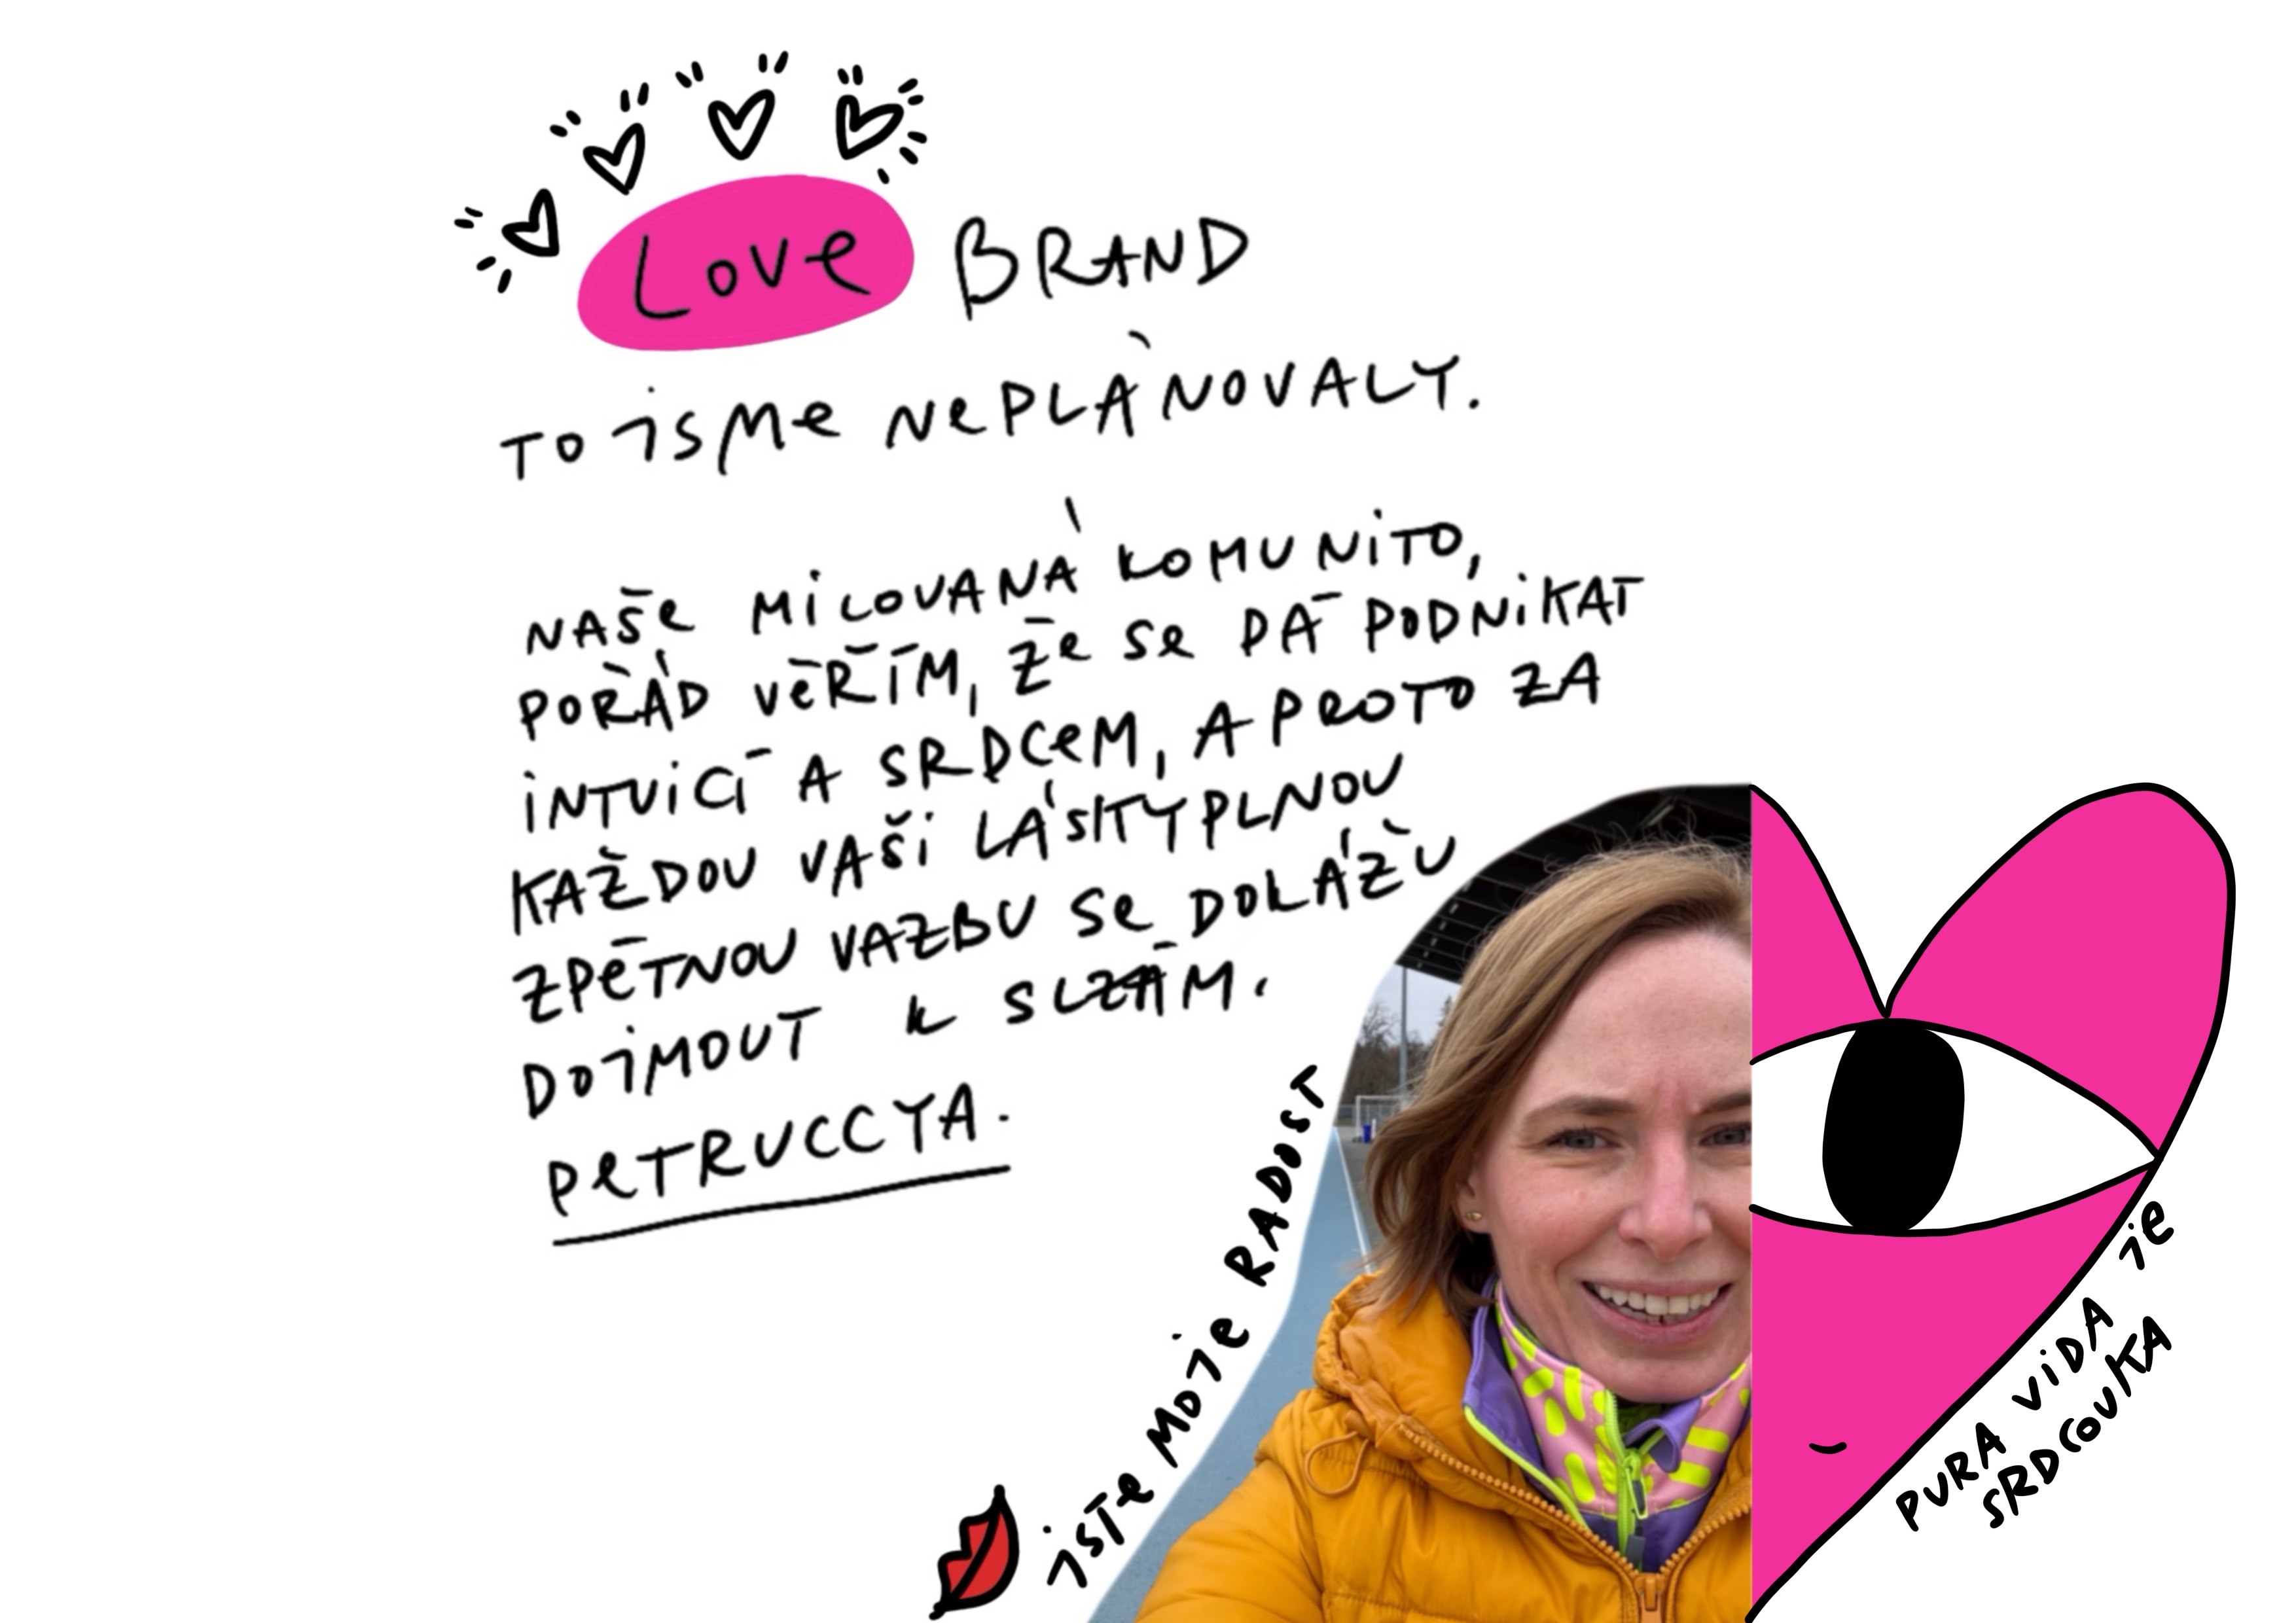 Love BRAND
TO JSME NEPLÁNOVALY.
NAŠE MILOVANÁ KOMUNITO,
POŘÁD VĚŘÍM, ŽE SE DÁ PODNIKAT
INTUICÍ A SRDCEM, A PROTO ZA
KAŽDOU VAŠI LÁSKYPLNOU
ZPĚTNOU VAZBU SE DOKÁŽU
DOJMOUT K SLZÁM.
PETRUCCYA.
JSTE MOJE RADOST
PURA VIDA JE
SRDCOVKA